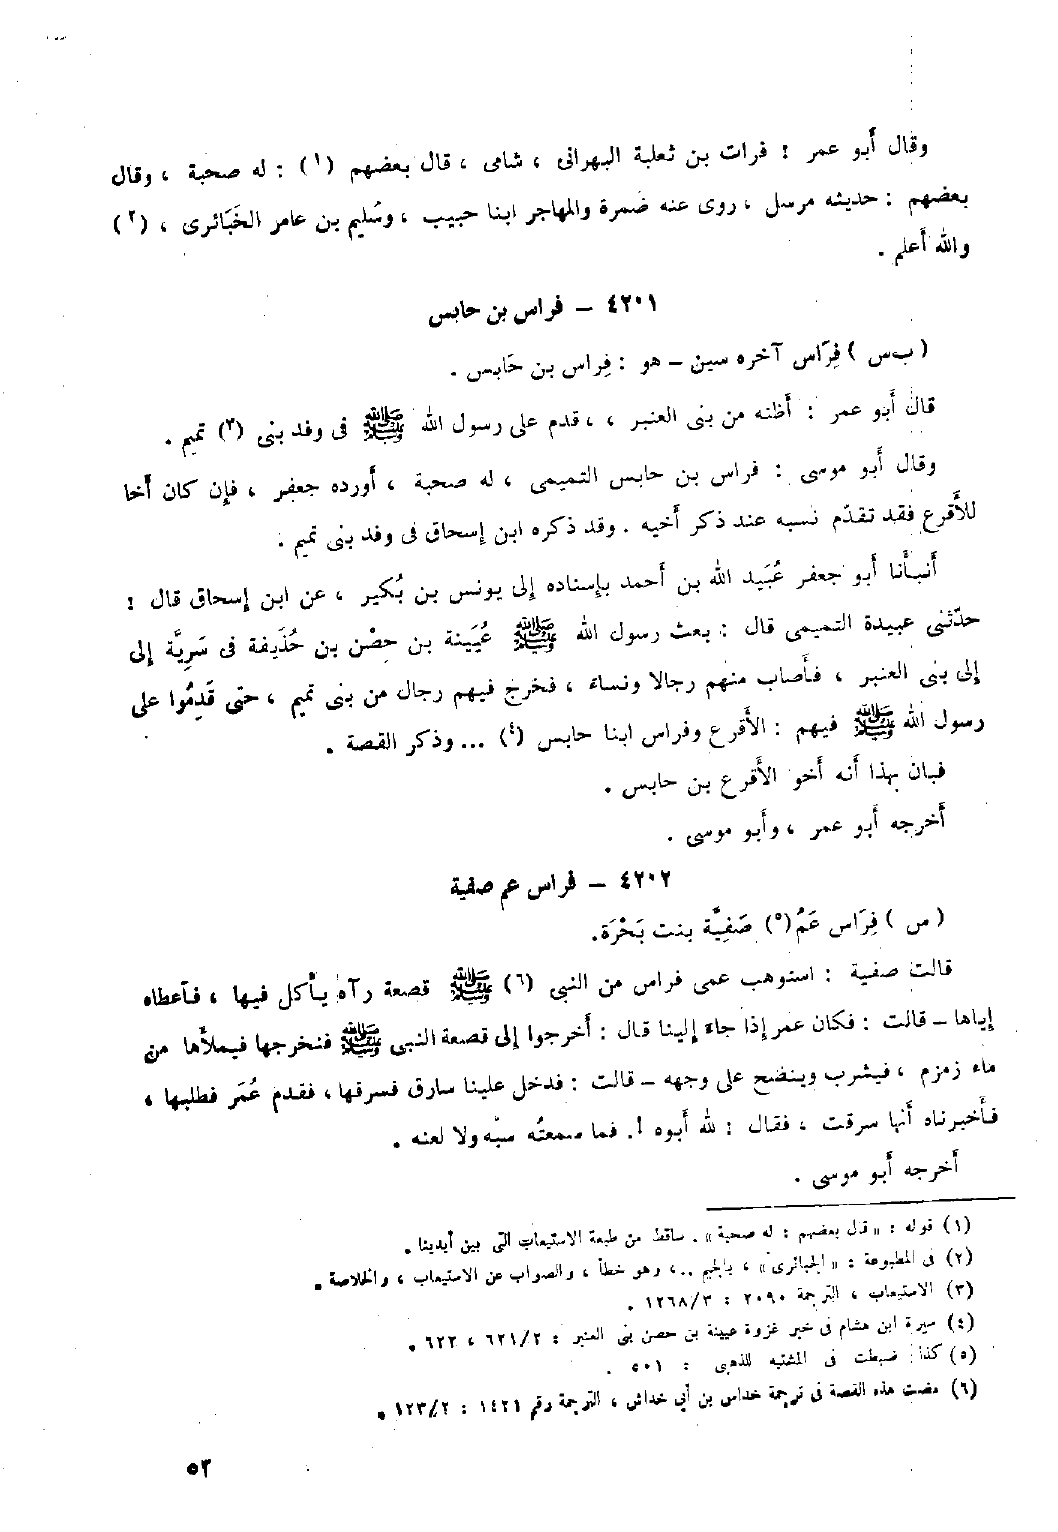 وقال أبو عمر : فرات بن ثعلبة البهرانى ، شامى ، قال بعضهم (١) : له صحبة ، وقال
بعضهم : حديثه مرسل ، روى عنه ضمرة والمهاجر ابنا حبيب ، وسُليم بن عامر الخَبَائرى ، (٢)
والله أعلم .
٤٢٠١ – فراس بن حابس
( ب س ) فِرَاس آخره سين – هو : فِراس بن حَابس .
قال أبو عمر : أظنه من بنى العنبر ، ، قدم على رسول الله ﷺ فى وفد بنى (٣) تميم .
وقال أبو موسى : فراس بن حابس التميمى ، له صحبة ، أورده جعفر ، فإن كان أخا
للأقرع فقد تقدّم نسبه عند ذكر أخيه . وقد ذكره ابن إسحاق فى وفد بنى تميم .
أنبأنا أبو جعفر عُبَيد الله بن أحمد بإسناده إلى يونس بن بُكير ، عن ابن إسحاق قال :
حدّثنى عبيدة التميمى قال : بعث رسول الله ﷺ عُيَينة بن حِصْن بن حُذَيفة فى سَرِيَّة إلى
إلى بنى العنبر ، فأصاب منهم رجالا ونساء ، فخرج فيهم رجال من بنى تميم ، حتى قَدِمُوا على
رسول الله ﷺ فيهم : الأقرع وفراس ابنا حابس (٤) ... وذكر القصة .
فبان بهذا أنه أخو الأقرع بن حابس .
أخرجه أبو عمر ، وأبو موسى .
٤٢٠٢ – فراس عم صفية
( س ) فِرَاس عَمُ (٥) صَفِيَّة بنت بَحْرَة.
قالت صفية : استوهب عمى فراس من النبى (٦) ﷺ قصعة رآه يأكل فيها ، فأعطاه
إياها – قالت : فكان عمر إذا جاء إلينا قال : أخرجوا إلى قصعة النبى ﷺ فنخرجها فيملأها من
ماء زمزم ، فيشرب وينضح على وجهه – قالت : فدخل علينا سارق فسرقها ، فقدم عُمَر فطلبها ،
فأخبرناه أنها سرقت ، فقال : لله أبوه !. فما سمعتُه سبّه ولا لعنه .
أخرجه أبو موسى .
(١) قوله : « قال بعضهم : له صحبة » . ساقط من طبعة الاستيعاب التى بين أيدينا .
(٢) فى المطبوعة : « الجبائرى » ، بالجيم .. ، وهو خطأ ، والصواب عن الاستيعاب ، والخلاصة .
(٣) الاستيعاب ، الترجمة ٢٠٩٠ : ١٢٦٨/٣ .
(٤) سيرة ابن هشام فى خبر غزوة عيينة بن حصن بنى العنبر : ٦٢١/٢ ، ٦٢٢ .
(٥) كذا ضبطت فى المشتبه للذهبى : ٥٠١ .
(٦) مضت هذه القصة فى ترجمة خداس بن أبي خداش ، الترجمة رقم ١٤٢١ : ١٢٣/٢ .
٥٣